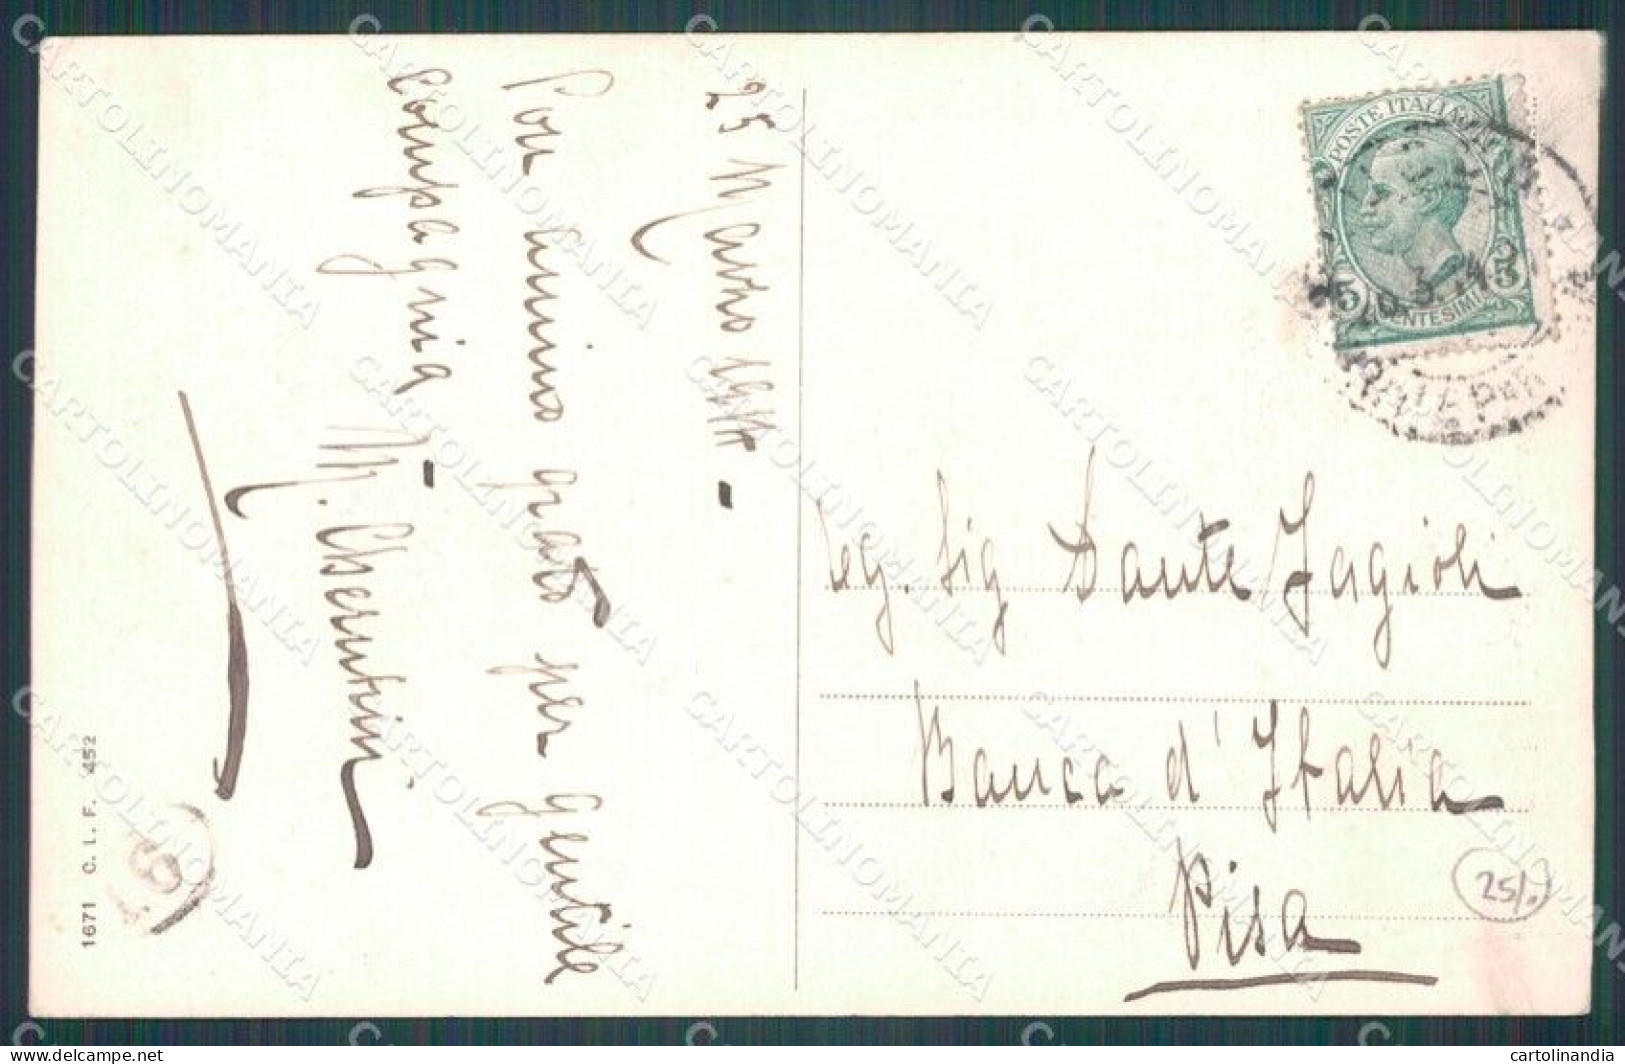 25 Marzo 1914 -
Con animo grato per gentile
compagnia -
POSTE ITALIANE
5 CENTESIMI 5
Eg. Sig Dante Fagioli
Banca d'Italia
Pisa
25/.
1671 C. I. F. 452
CARTOLINOMANIA
delcampe.net
cartolinandia